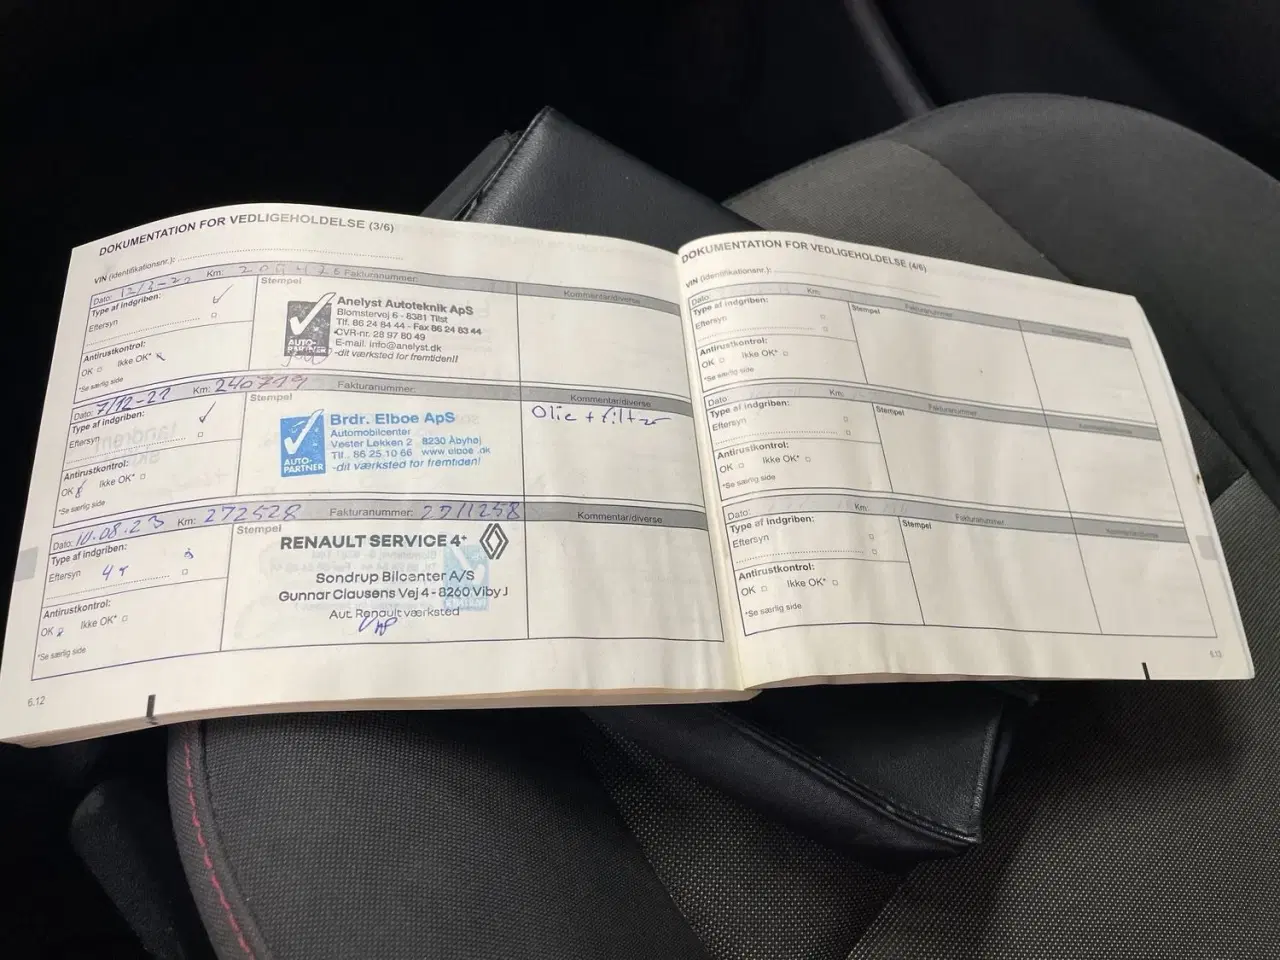 DOKUMENTATION FOR VEDLIGEHOLDELSE (3/6)
VIN (identifikationsnr.):
Dato: Km: 209475 Fakturanummer:
Type af indgriben:
Eftersyn
Antirustkontrol:
OK Ikke OK*
*Se særlig side
Stempel
AUTO-PARTNER
Anelyst Autoteknik ApS
Blomstervej 6 - 8381 Tilst
Tlf. 86 24 84 44 - Fax 86 24 83 44
CVR-nr. 28 97 80 49
E-mail: info@anelyst.dk
-dit værksted for fremtiden!!
Kommentar/diverse
Dato: 7/12-22 Km: 240719 Fakturanummer:
Type af indgriben:
Eftersyn
Antirustkontrol:
OK Ikke OK*
*Se særlig side
Stempel
AUTO-PARTNER
Brdr. Elboe ApS
Automobilcenter
Vester Løkken 2 8230 Åbyhøj
Tlf. 86 25 10 66 www.elboe.dk
-dit værksted for fremtiden!
Kommentar/diverse
Olie + filter
Dato: 10.08.23 Km: 272528 Fakturanummer: 2711258
Type af indgriben:
Eftersyn
Antirustkontrol:
OK Ikke OK*
*Se særlig side
Stempel
RENAULT SERVICE 4+
Sondrup Bilcenter A/S
Gunnar Clausens Vej 4 - 8260 Viby J
Aut. Renault værksted
Kommentar/diverse
6.12
DOKUMENTATION FOR VEDLIGEHOLDELSE (4/6)
VIN (identifikationsnr.):
Dato: Km: Fakturanummer:
Type af indgriben:
Eftersyn
Antirustkontrol:
OK Ikke OK*
*Se særlig side
Stempel
Kommentar/diverse
Dato: Km: Fakturanummer:
Type af indgriben:
Eftersyn
Antirustkontrol:
OK Ikke OK*
*Se særlig side
Stempel
Kommentar/diverse
Dato: Km: Fakturanummer:
Type af indgriben:
Eftersyn
Antirustkontrol:
OK Ikke OK*
*Se særlig side
Stempel
Kommentar/diverse
6.13